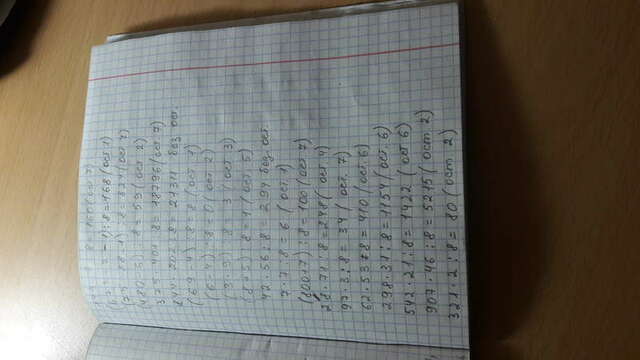 : 8 = 168 (ост 1)
(ост 4)
: 8 = 59 (ост 2)
375 · 401 : 8 = 18796 (ост 7)
844 · 202 : 8 = 21311 без ост
(69-4) : 8 = 8 (ост 1)
(6-4) : 8 = 0 (ост. 2)
(9·3) : 8 = 3 (ост 3)
(8+5) : 8 = 1 (ост 5)
42·56 : 8 = 294 без ост.
7·7 : 8 = 6 (ост 1)
(800+7) : 8 = 100 (ост 7)
28·71 : 8 = 248 (ост. 4)
: 8 = 34 (ост. 7)
62·53 : 8 = 410 (ост. 6)
298·31 : 8 = 1154 (ост. 6)
542·21 : 8 = 1422 (ост 6)
907·46 : 8 = 5215 (ост 2)
321·2 : 8 = 80 (ост 2)